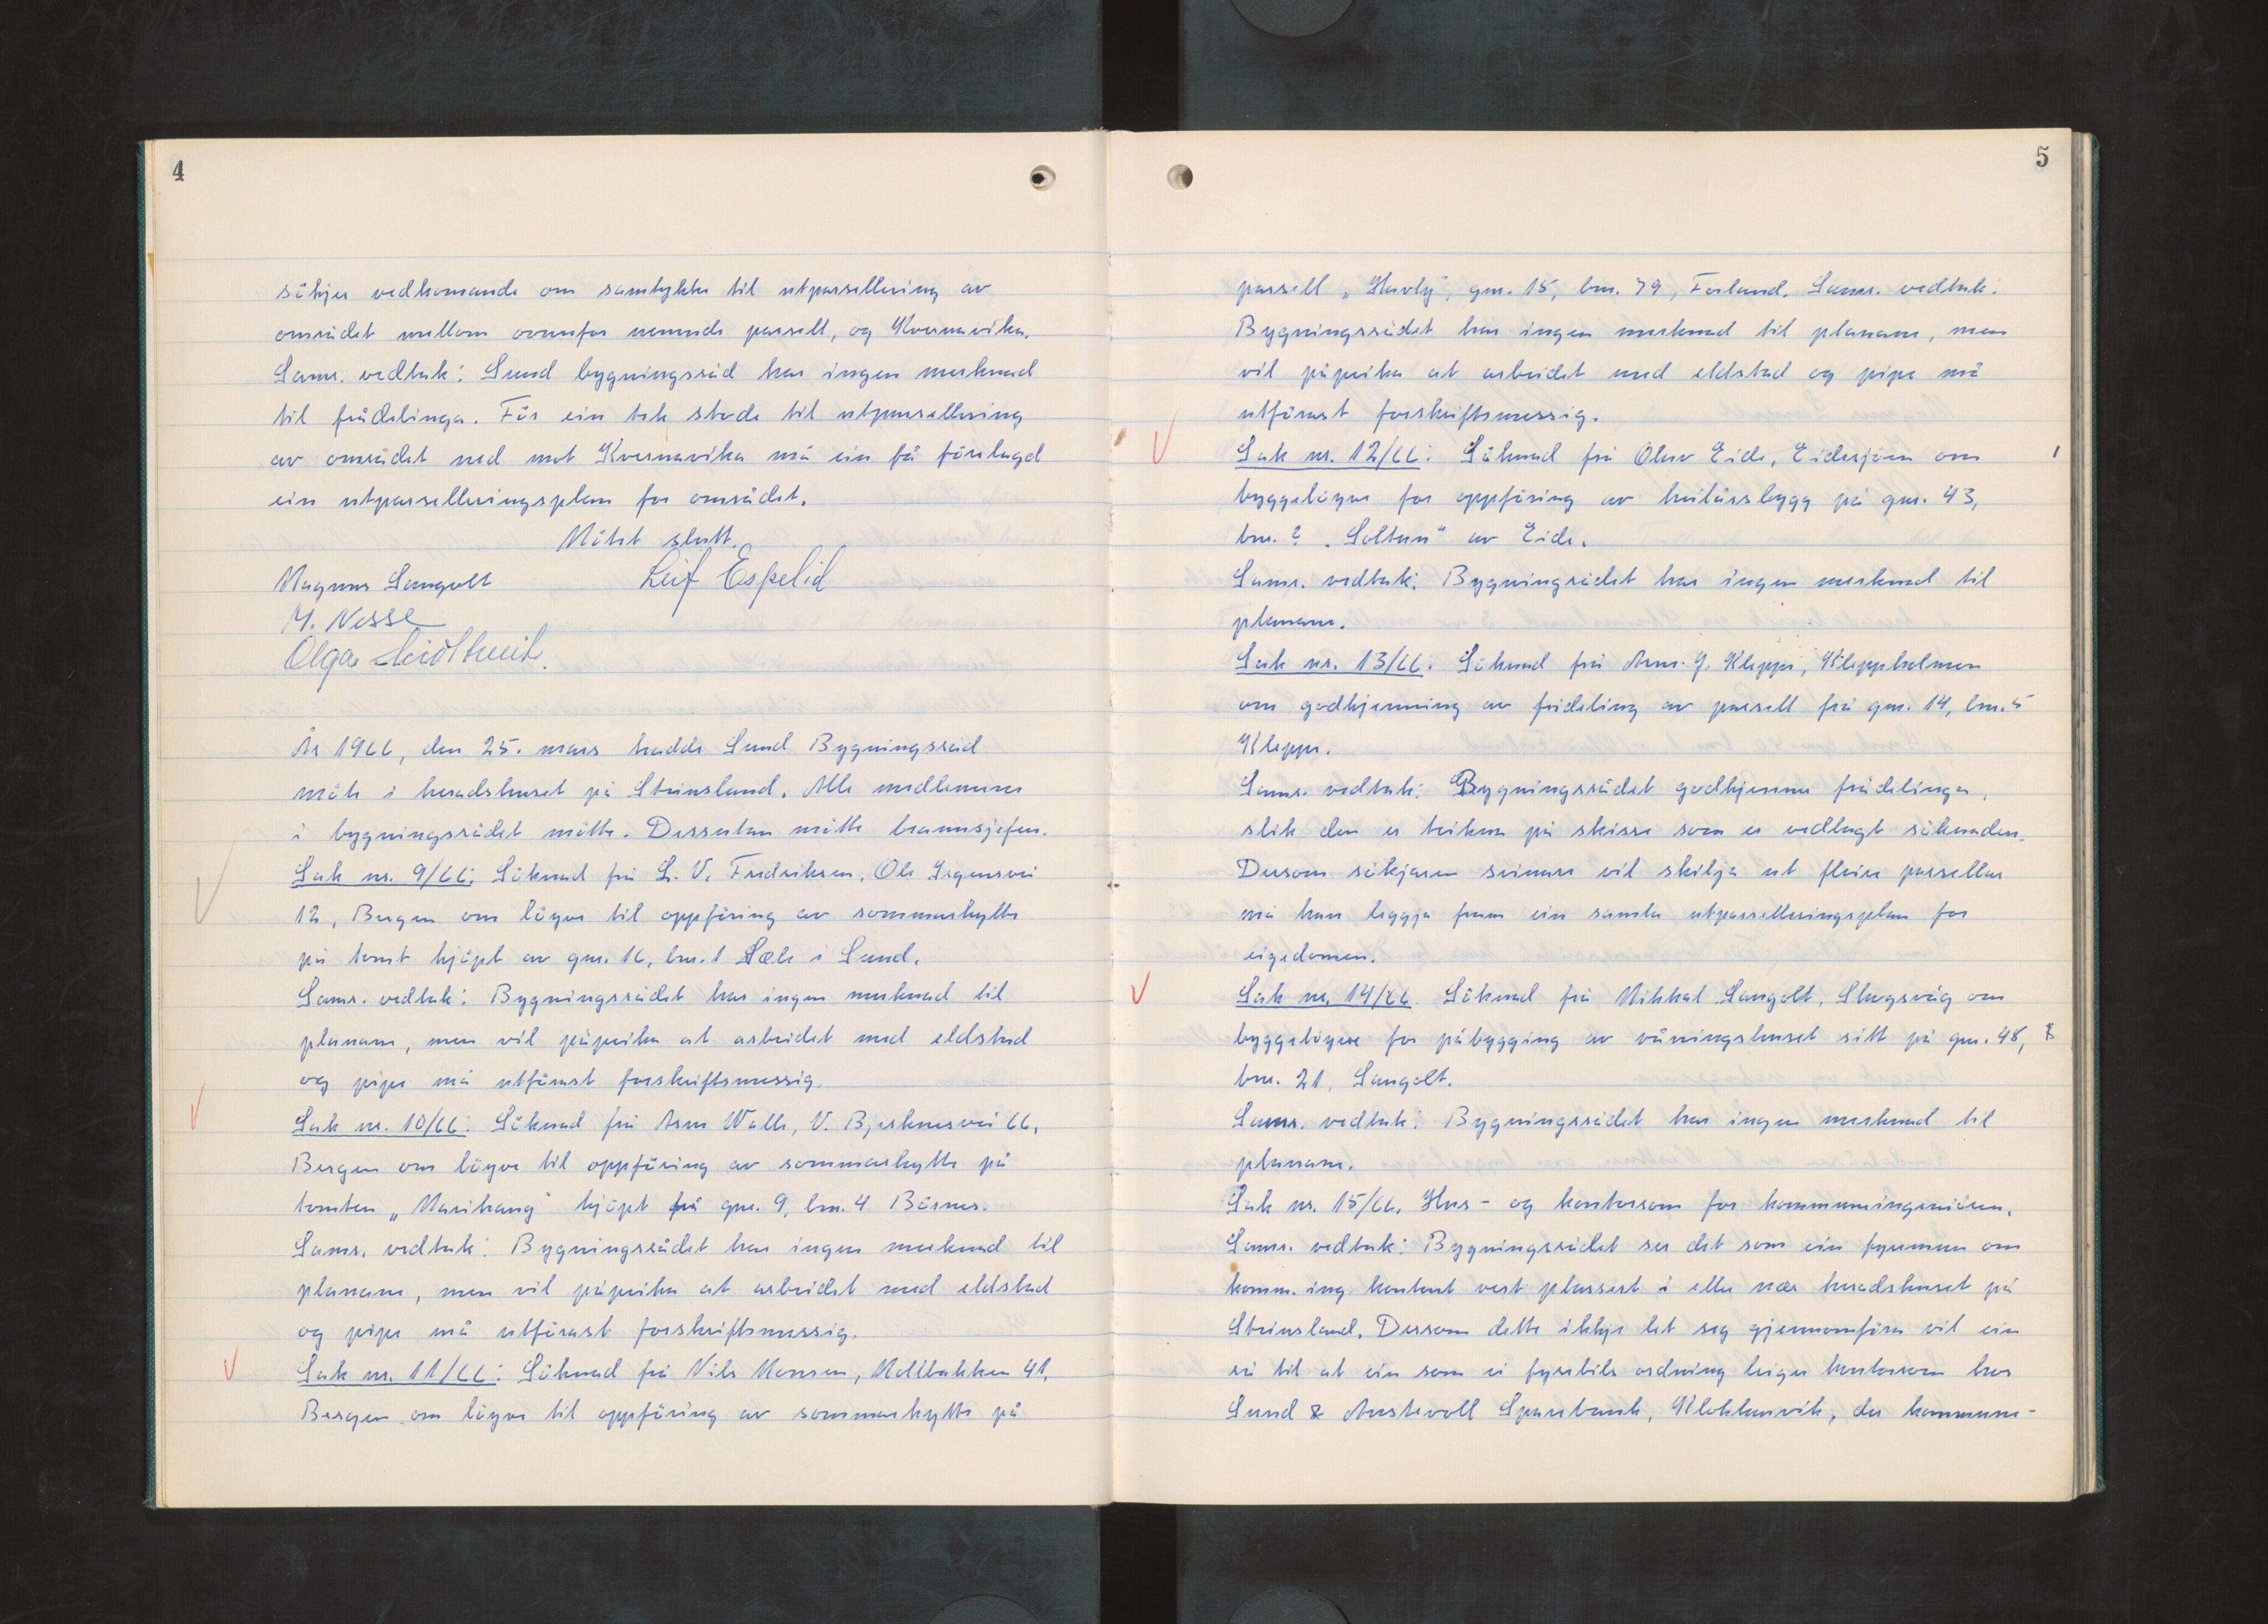 4
søkjer vedkomande om samtykke til utparsellering av
området mellom ovanfor nemnde parsell, og Kvernavika.
Sams. vedtak: Sund bygningsråd har ingen merknad
til frådelinga. Før ein tek stode til utparsellering
av området ned mot Kvernavika må ein få förelagd
ein utparselleringsplan for området.
Møtet slutt.
Magnus Sangolt Leif Espelid
M. Nesse
Olga
År 1966, den 25. mars hadde Sund Bygningsråd
möte i heradshuset på Steinsland. Alle medlemene
i bygningsrådet mötte. Dessutan mötte brannsjefen.
Sak nr. 9/66: Söknad frå L. V. Fredriksen, Ole Irgensvei
12, Bergen om löyve til oppföring av sommarhytte
på tomt kjöpt av gnr. 16, bnr. 1 Sæle i Sund.
Sams. vedtak: Bygningsrådet har ingen merknad til
planane, men vil påpeika at arbeidet med eldstad
og pipe må utförast forskriftsmessig.
Sak nr. 10/66: Söknad frå Arne Walle, V. Bjerknesvei 66,
Bergen om löyve til oppföring av sommarhytte på
tomten „Marihaug" kjöpt frå gnr. 9, bnr. 4 Börnes.
Sams. vedtak: Bygningsrådet har ingen merknad til
planane, men vil påpeika at arbeidet med eldstad
og pipe må utförast forskriftsmessig.
Sak nr. 11/66: Söknad frå Nils Monsen, Møllbakken 41,
Bergen om löyve til oppföring av sommarhytte på
5
parsell „Havly", gnr. 15, bnr. 79, Forland. Sams. vedtak:
Bygningsrådet har ingen merknad til planane, men
vil påpeika at arbeidet med eldstad og pipe må
utförast forskriftsmessig.
Sak nr. 12/66: Söknad frå Olav Eide, Eidesjöen om
byggelöyve for oppföring av heilårsbygg på gnr. 43,
bnr. ? „Soltun" av Eide.
Sams. vedtak: Bygningsrådet har ingen merknad til
planane.
Sak nr. 13/66: Söknad frå Arne J. Kleppe, Kleppholmen
om godkjenning av frådeling av parsell frå gnr. 14, bnr. 5
Kleppe.
Sams. vedtak: Bygningsrådet godkjenner frådelinga,
slik den er teikna på skisse som er vedlagt söknaden.
Dersom søkjaren seinare vil skilja ut fleire parsellar
må han leggja fram ein samla utparselleringsplan for
eigedomen.
Sak nr. 14/66 Söknad frå Mikkal Sangolt, Skogsvåg om
byggelöyve for påbygging av våningshuset sitt på gnr. 48,
bnr. 21, Sangolt.
Sams. vedtak: Bygningsrådet har ingen merknad til
planane.
Sak nr. 15/66. Hus- og kontorrom for kommuneingeniören.
Sams. vedtak: Bygningsrådet ser det som ein fyremun om
komm. ing. kontoret vert plassert i eller nær heradshuset på
Steinsland. Dersom dette ikkje let seg gjennomföra vil ein
rå til at ein som ei fyrebils ordning leiger kontorrom hos
Sund & Austevoll Sparebank, Klokkarvik, der kommune-